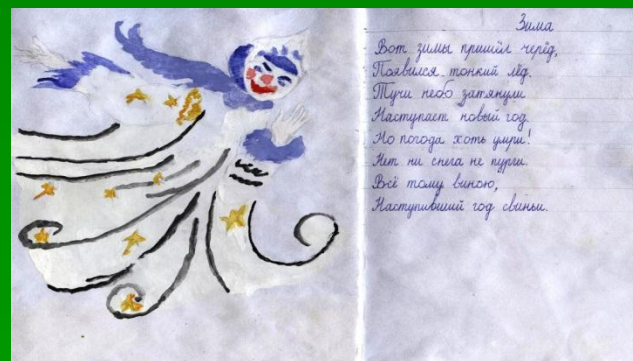 Зима
Вот зимы пришёл черёд,
Появился тонкий лёд.
Тучи небо затянули
Наступает новый год.
Но погода хоть умри!
Нет ни снега не пурги.
Всё тому виною,
Наступивший год свиньи.